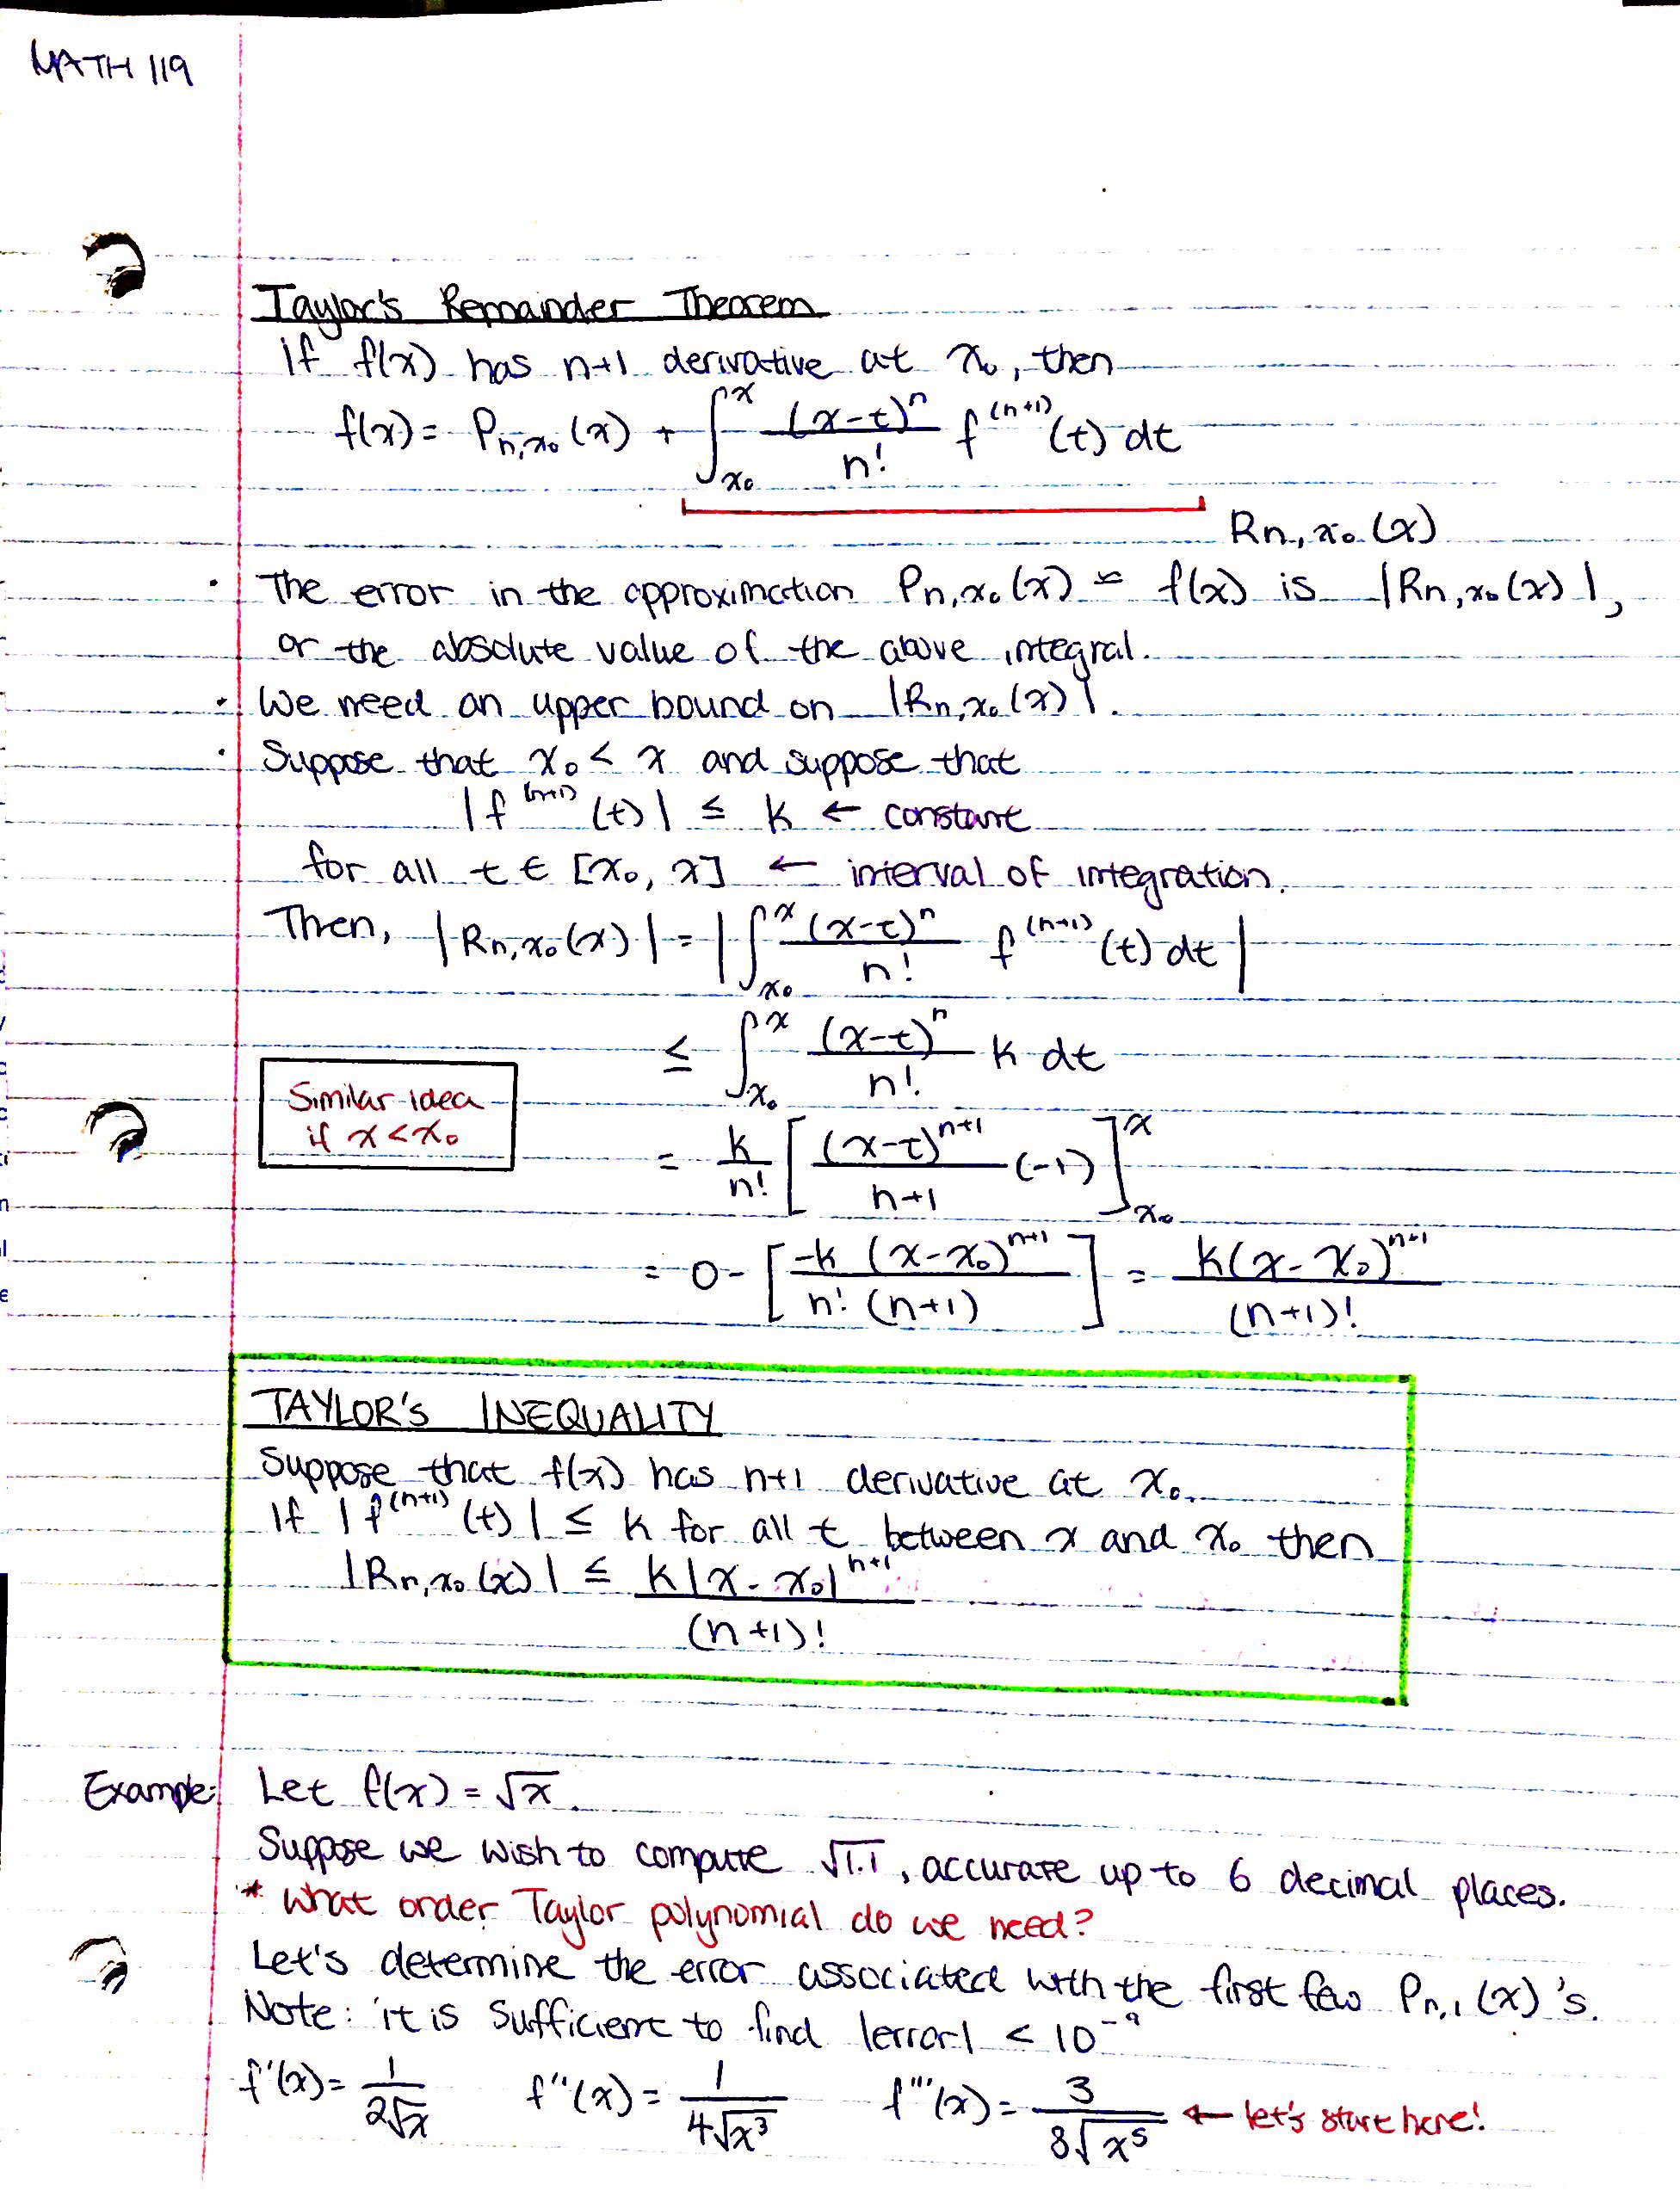 MATH 119
Taylor's Remainder Theorem
If f(x) has n+1 derivative at x₀, then
f(x) = Pn,x₀(x) + ∫_{x₀}^{x} (x-t)^n / n! f^(n+1)(t) dt
Rn,x₀(x)
• The error in the approximation Pn,x₀(x) ≈ f(x) is |Rn,x₀(x)|,
or the absolute value of the above integral.
• We need an upper bound on |Rn,x₀(x)|.
• Suppose that x₀ < x and suppose that
|f^(n+1)(t)| ≤ K ← constant
for all t ∈ [x₀, x] ← interval of integration.
Then, |Rn,x₀(x)| = |∫_{x₀}^{x} (x-t)^n / n! f^(n+1)(t) dt|
≤ ∫_{x₀}^{x} (x-t)^n / n! K dt
Similar idea
if x < x₀
= K/n! [(x-t)^(n+1) / n+1 (-1)]_{x₀}^{x}
= 0 - [-K (x-x₀)^(n+1) / n! (n+1)] = K(x-x₀)^(n+1) / (n+1)!
TAYLOR'S INEQUALITY
Suppose that f(x) has n+1 derivative at x₀.
If |f^(n+1)(t)| ≤ K for all t between x and x₀ then
|Rn,x₀(x)| ≤ K|x-x₀|^(n+1) / (n+1)!
Example: Let f(x) = √x.
Suppose we wish to compute √1.1, accurate up to 6 decimal places.
* What order Taylor polynomial do we need?
Let's determine the error associated with the first few Pn,1(x)'s.
Note: it is sufficient to find |error| < 10^-9
f'(x) = 1 / 2√x f''(x) = 1 / 4√x³ f'''(x) = 3 / 8√x⁵ ← let's start here!